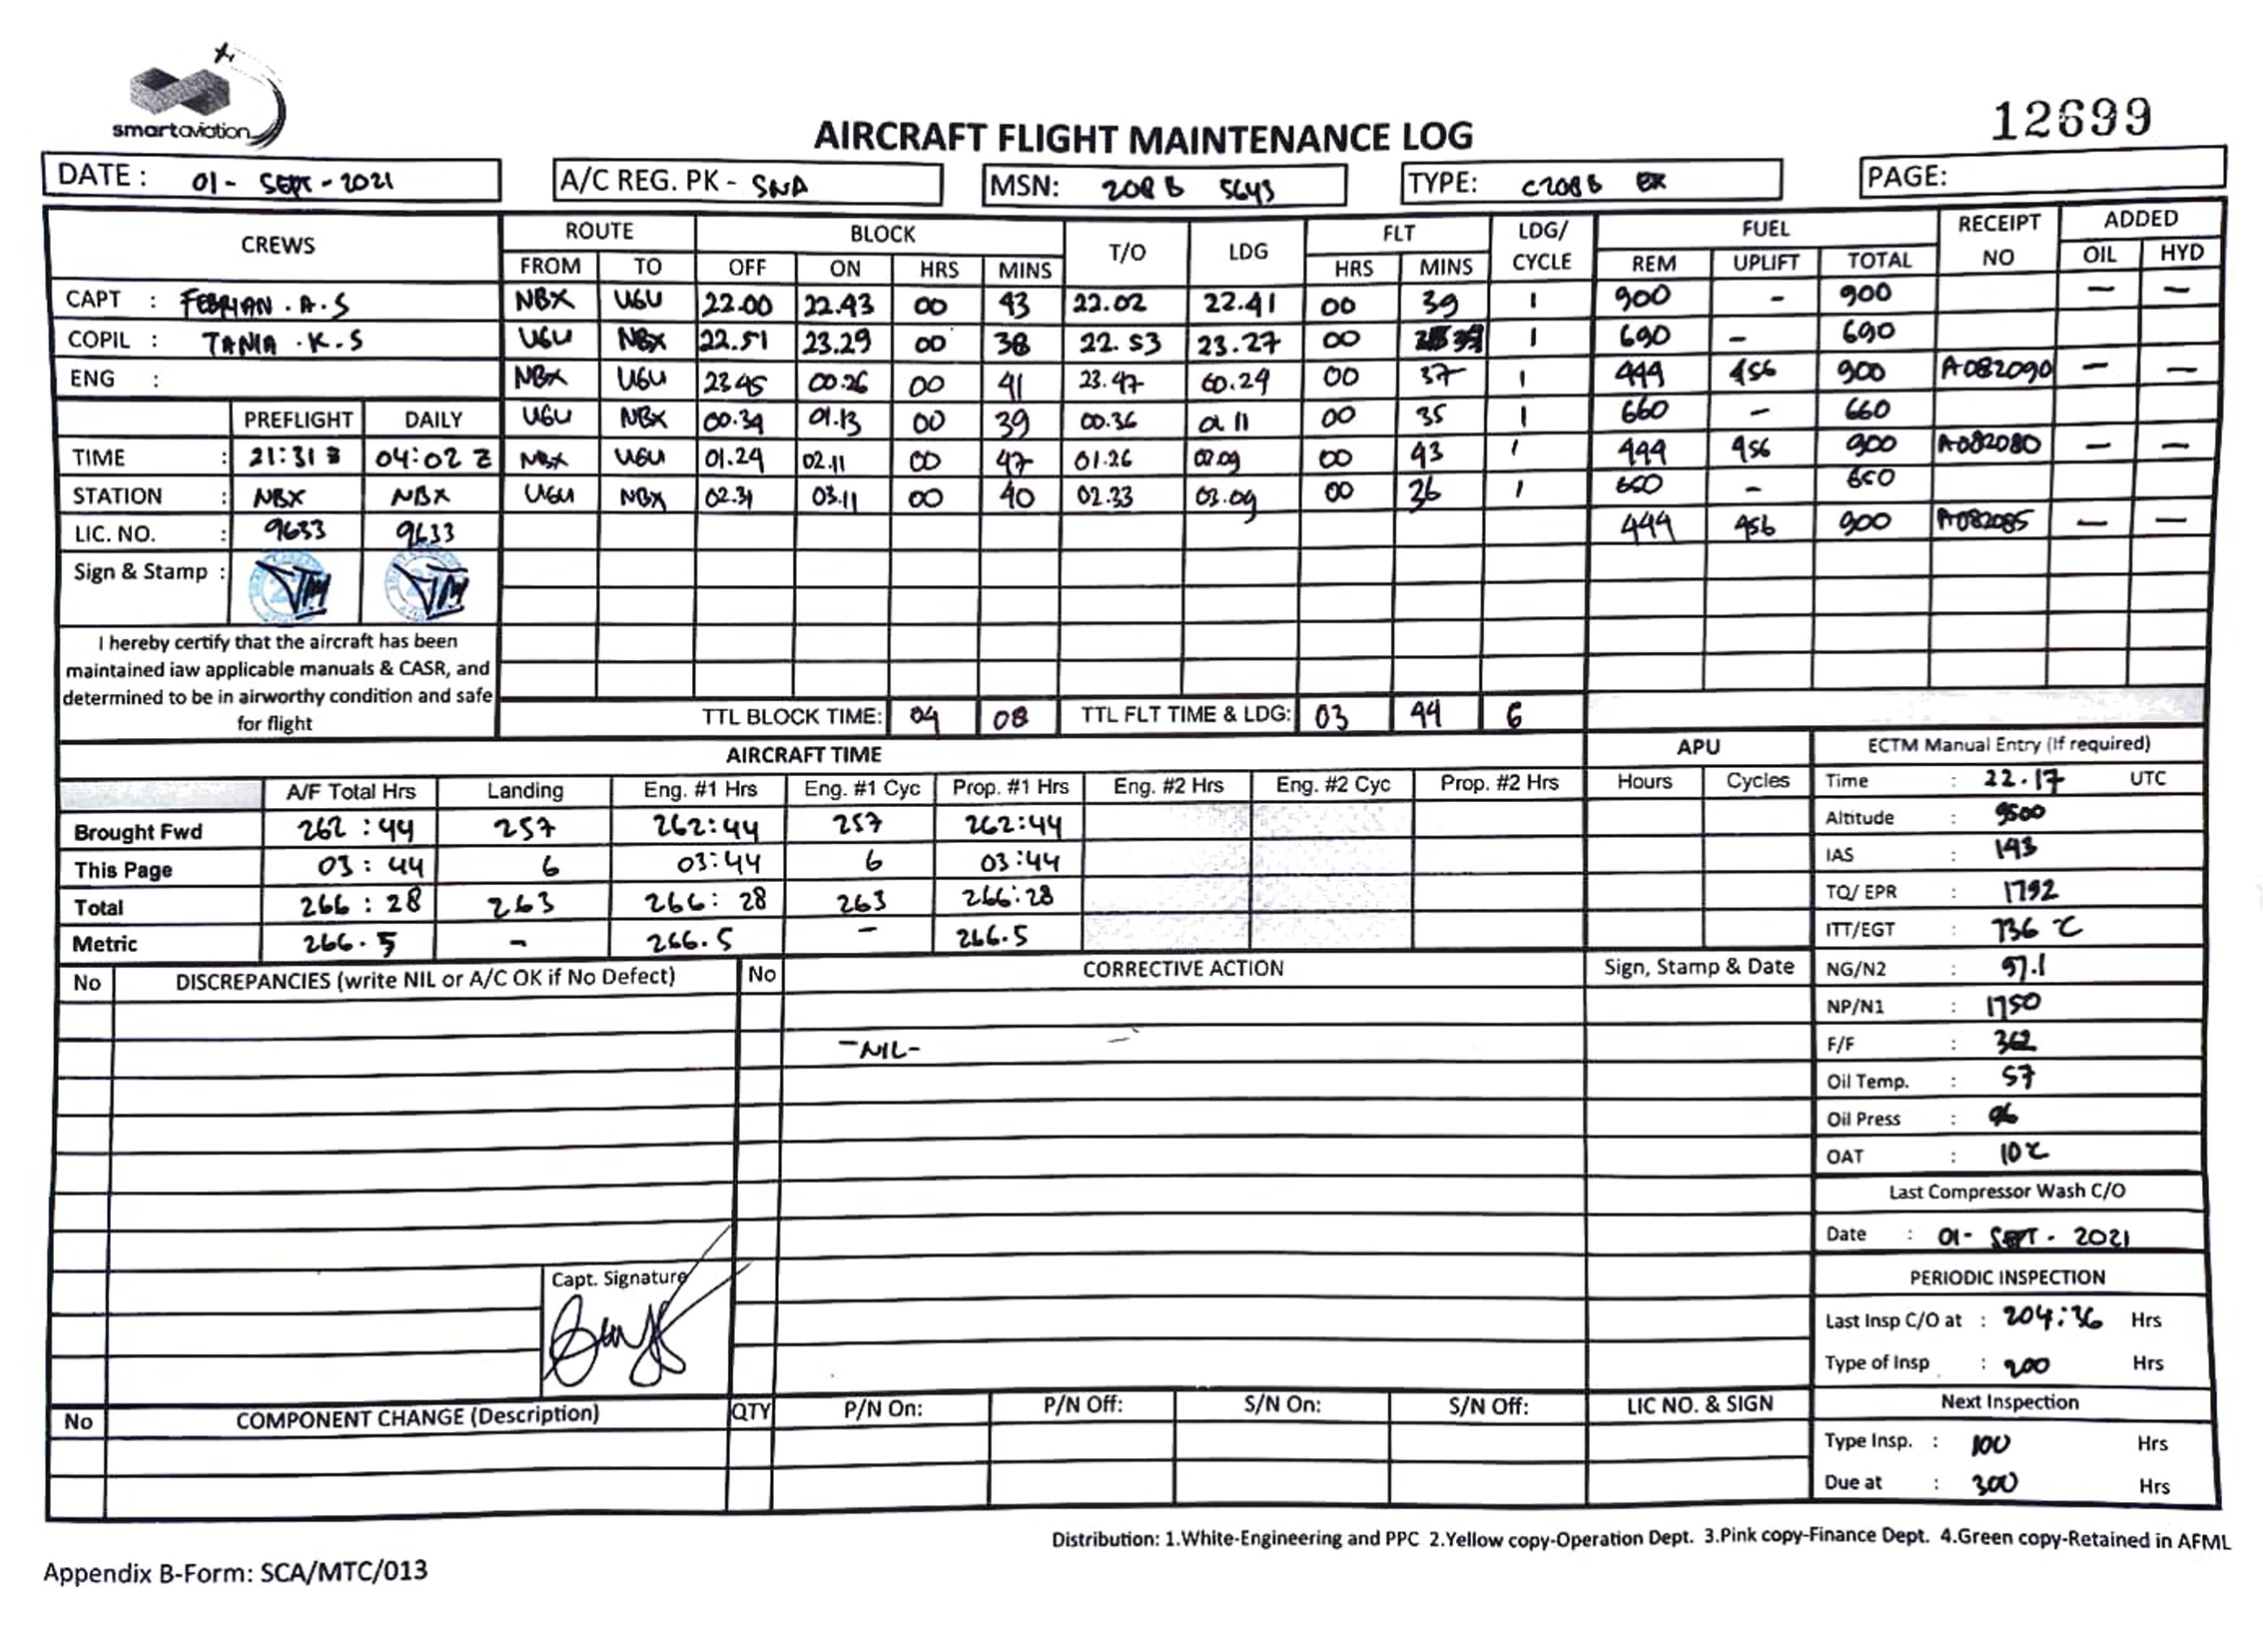 smartaviation
12699
AIRCRAFT FLIGHT MAINTENANCE LOG
DATE : 01 - SEPT - 2021 A/C REG. PK - SNA MSN: 208 B 5643 TYPE: C208 B EX PAGE:
CREWS ROUTE BLOCK T/O LDG FLT LDG/ CYCLE FUEL RECEIPT NO ADDED
FROM TO OFF ON HRS MINS HRS MINS REM UPLIFT TOTAL OIL HYD
CAPT : FEBRIAN . A . S NBX UGU 22.00 22.43 00 43 22.02 22.41 00 39 1 900 - 900 — —
COPIL : TANIA . K . S UGU NBX 22.51 23.29 00 38 22.53 23.27 00 1 690 - 690
ENG : NBX UGU 23.45 00.26 00 41 23.47 00.24 00 37 1 444 456 900 A082090 — —
PREFLIGHT DAILY UGU NBX 00.34 01.13 00 39 00.36 01.11 00 35 1 660 - 660
TIME : 21:31 Z 04:02 Z NBX UGU 01.24 02.11 00 47 01.26 02.09 00 43 1 444 456 900 A082080 — —
STATION : NBX NBX UGU NBX 02.31 03.11 00 40 02.33 03.09 00 36 1 650 - 650
LIC. NO. : 9633 9633 444 456 900 A082085 — —
Sign & Stamp :
I hereby certify that the aircraft has been
maintained iaw applicable manuals & CASR, and
determined to be in airworthy condition and safe
for flight
TTL BLOCK TIME: 04 08 TTL FLT TIME & LDG: 03 44 6
AIRCRAFT TIME APU ECTM Manual Entry (If required)
A/F Total Hrs Landing Eng. #1 Hrs Eng. #1 Cyc Prop. #1 Hrs Eng. #2 Hrs Eng. #2 Cyc Prop. #2 Hrs Hours Cycles Time : 22.17 UTC
Brought Fwd 262 : 44 257 262:44 257 262:44 Altitude : 9500
This Page 03 : 44 6 03:44 6 03:44 IAS : 143
Total 266 : 28 263 266: 28 263 266:28 TQ/ EPR : 1792
Metric 266.5 - 266.5 - 266.5 ITT/EGT : 736 °C
No DISCREPANCIES (write NIL or A/C OK if No Defect) No CORRECTIVE ACTION Sign, Stamp & Date NG/N2 : 97.1
NP/N1 : 1750
-NIL- F/F : 362
Oil Temp. : 57
Oil Press : 96
OAT : 10°C
Last Compressor Wash C/O
Date : 01- SEPT - 2021
Capt. Signature PERIODIC INSPECTION
Last Insp C/O at : 204:36 Hrs
Type of Insp : 200 Hrs
No COMPONENT CHANGE (Description) QTY P/N On: P/N Off: S/N On: S/N Off: LIC NO. & SIGN Next Inspection
Type Insp. : 100 Hrs
Due at : 300 Hrs
Distribution: 1.White-Engineering and PPC 2.Yellow copy-Operation Dept. 3.Pink copy-Finance Dept. 4.Green copy-Retained in AFML
Appendix B-Form: SCA/MTC/013